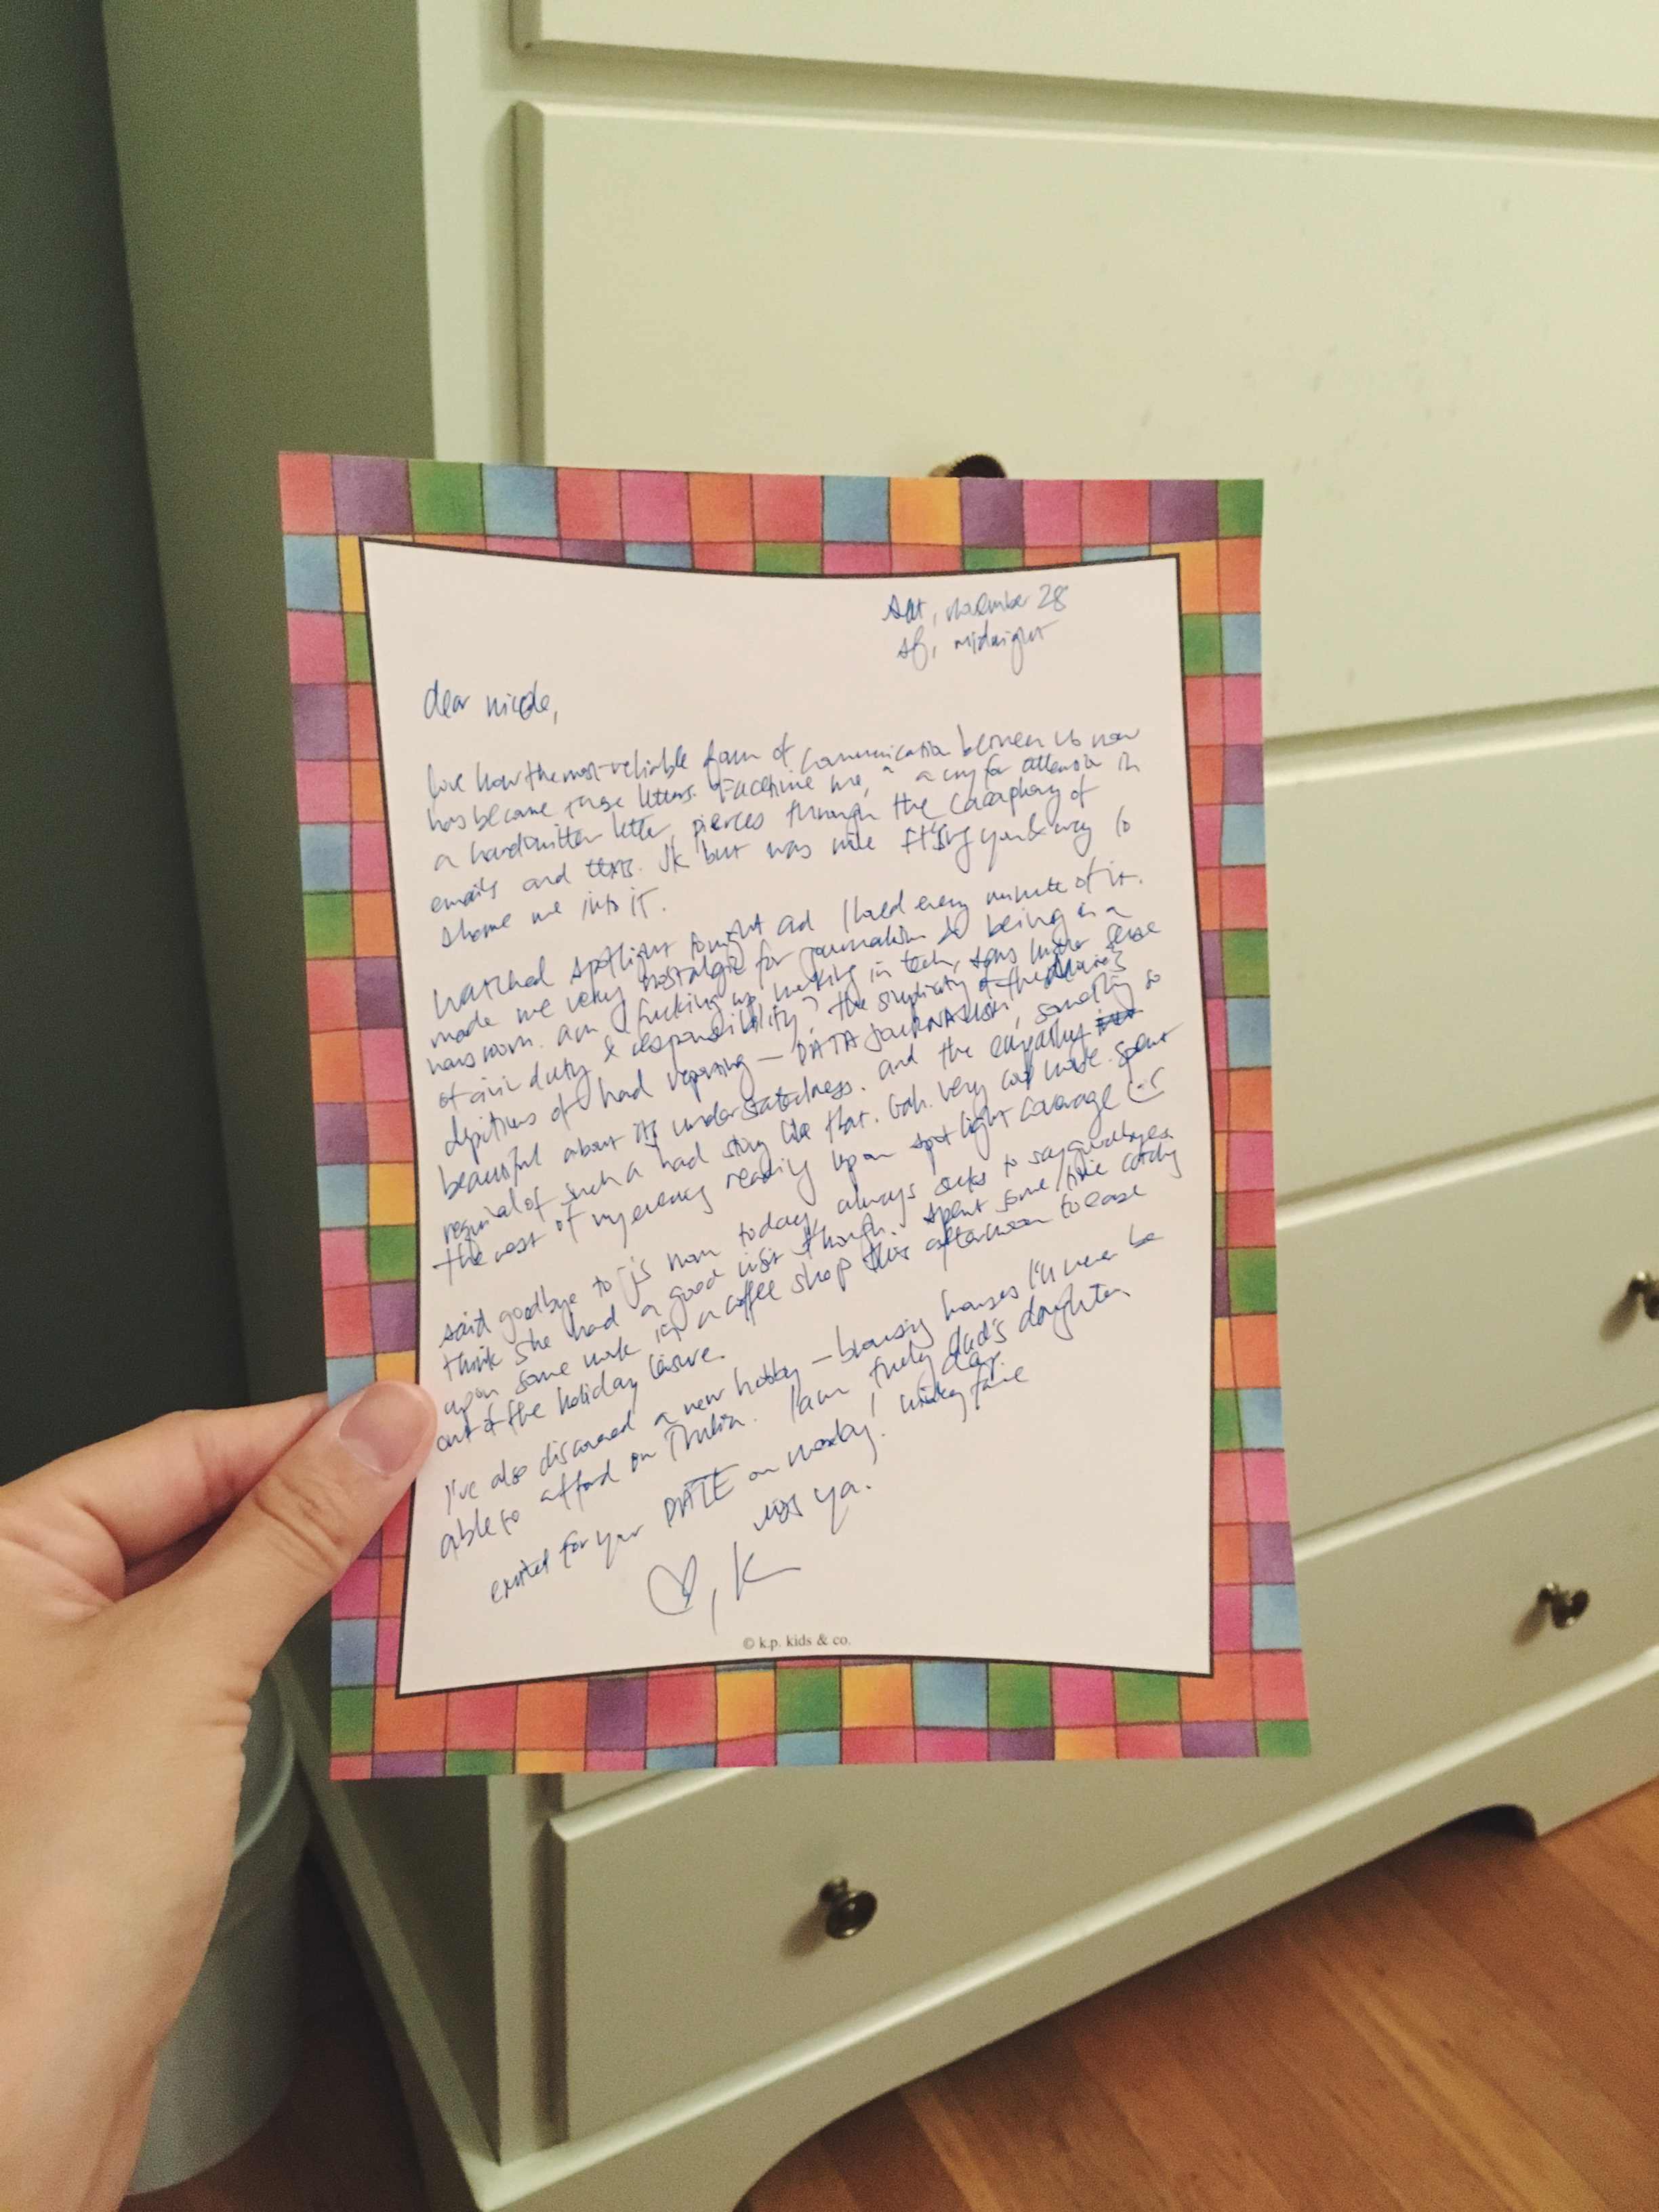 sat, november 28
sf, midnight
dear nicole,
love how the most reliable form of communication between us now
has become these letters. "Facetime me," a cry for attention in
a handwritten letter, pierces through the cacophony of
emails and texts. JK but was nice FT'ing you & way to
shame me into it.
watched spotlight tonight and loved every minute of it.
made me very nostalgic for journalism & being in a
newsroom. am I fucking up working in tech, sans higher sense
of civic duty & responsibility? the simplicity of the movie's
depictions of hard reporting — DATA JOURNALISM, something so
beautiful about its understatedness. and the empathy
of such a hard story like that. Gah. very good movie. spent
the rest of my evening reading upon spotlight coverage
said goodbye to J's mom today, always sucks to say goodbyes.
think she had a good visit though. spent some time catching
upon some work in a coffee shop this afternoon to ease
out of the holiday leisure.
I've also discovered a new hobby — browsing houses I'll never be
able to afford on Trulia. I am truly dad's daughter.
excited for your DATE on
miss ya.
♡, K
© k.p. kids & co.